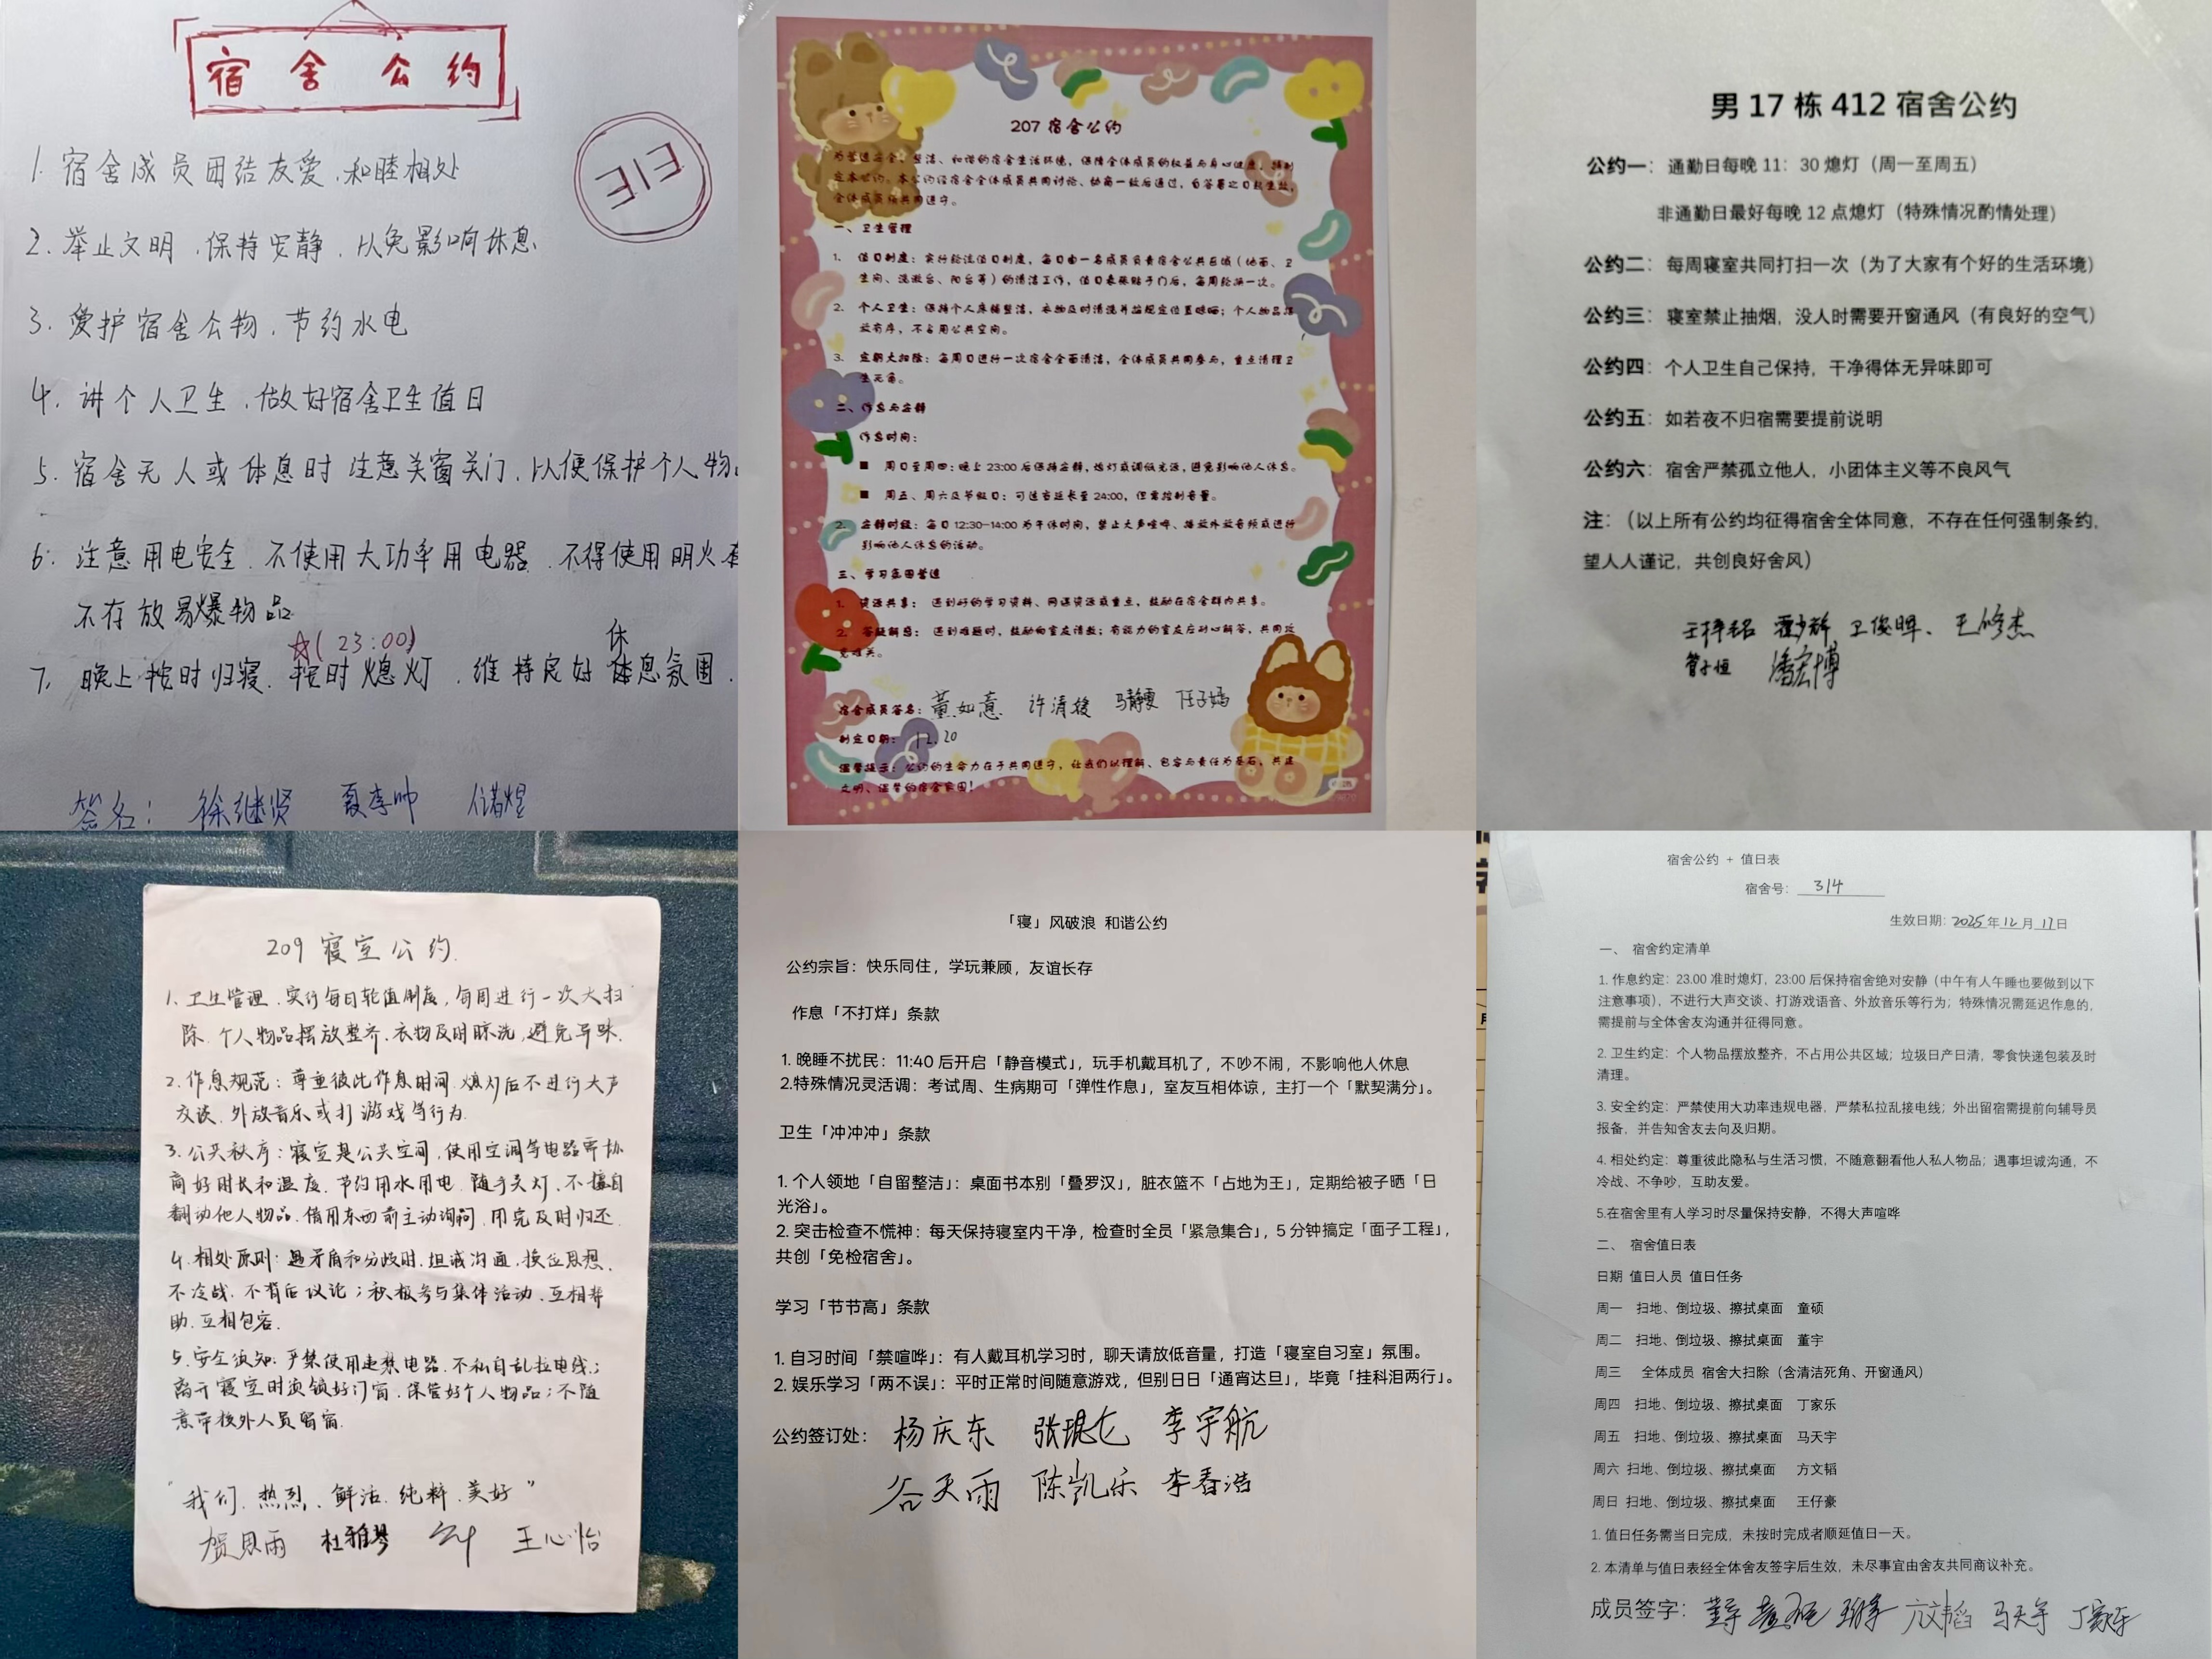 宿舍公约
313
1. 宿舍成员团结友爱、和睦相处
2. 举止文明，保持安静，以免影响休息
3. 爱护宿舍公物，节约水电
4. 讲个人卫生，做好宿舍卫生值日
5. 宿舍无人或休息时 注意关窗关门，以便保护个人物
6. 注意用电安全，不使用大功率用电器，不得使用明火
不存放易爆物品
☆(23:00) 休
7. 晚上按时归寝，按时熄灯，维持良好 息氛围.
签名： 徐继贤 夏李帅 储煜
207 宿舍公约
为营造安全、整洁、和谐的宿舍生活环境，保障全体成员的权益与身心健康，特制
定本公约。本公约经宿舍全体成员共同讨论、协商一致后通过，自签署之日起生效，
全体成员须共同遵守。
一、卫生管理
1. 值日制度：实行轮流值日制度，每日由一名成员负责宿舍公共区域（地面、卫
生间、洗漱台、阳台等）的清洁工作，值日表张贴于门后，每周轮换一次。
2. 个人卫生：保持个人床铺整洁，衣物及时清洗并按规定位置晾晒；个人物品摆
放有序，不占用公共空间。
3. 定期大扫除：每周日进行一次宿舍全面清洁，全体成员共同参与，重点清理卫
生死角。
二、作息与安静
作息时间：
■ 周日至周四：晚上 23:00 后保持安静，熄灯或调低光源，避免影响他人休息。
■ 周五、周六及节假日：可适当延长至 24:00，但需控制音量。
2. 安静时段：每日 12:30-14:00 为午休时间，禁止大声喧哗、播放外放音频或进行
影响他人休息的活动。
三、学习氛围营造
1. 资源共享： 遇到好的学习资料、网课资源或重点，鼓励在宿舍群内共享。
2. 答疑解惑： 遇到难题时，鼓励向室友请教；有能力的室友应耐心解答，共同攻
克难关。
宿舍成员签名：董如意 许清 马静雯 任子嫣
制定日期： 12.20
温馨提示：公约的生命力在于共同遵守，让我们以理解、包容与责任为基石，共建
文明、温馨的宿舍家园！
男 17 栋 412 宿舍公约
公约一：通勤日每晚 11：30 熄灯（周一至周五）
非通勤日最好每晚 12 点熄灯（特殊情况酌情处理）
公约二：每周寝室共同打扫一次（为了大家有个好的生活环境）
公约三：寝室禁止抽烟，没人时需要开窗通风（有良好的空气）
公约四：个人卫生自己保持，干净得体无异味即可
公约五：如若夜不归宿需要提前说明
公约六：宿舍严禁孤立他人，小团体主义等不良风气
注：（以上所有公约均征得宿舍全体同意，不存在任何强制条约，
望人人谨记，共创良好舍风）
卫俊晖、王修杰
管子恒 潘宏博
209 寝室公约.
1. 卫生管理，实行每日轮值制度，每周进行一次大扫
除，个人物品摆放整齐，衣物及时晾洗，避免异味.
2. 作息规范：尊重彼此作息时间，熄灯后不进行大声
交谈、外放音乐或打游戏等行为.
3. 公共秩序：寝室是公共空间，使用空调等电器需协
商好时长和温度，节约用水用电，随手关灯，不擅自
翻动他人物品，借用东西前主动询问，用完及时归还.
4. 相处原则：遇矛盾和分歧时，坦诚沟通，换位思想，
不冷战，不背后议论；积极参与集体活动，互相帮
助，互相包容.
5. 安全须知：严禁使用违禁电器，不私自乱拉电线；
离开寝室时须锁好门窗，保管好个人物品；不随
意带校外人员留宿.
“我们、热烈、鲜活、纯粹、美好”
贺思雨 杜雅琴 王心怡
「寝」风破浪 和谐公约
公约宗旨：快乐同住，学玩兼顾，友谊长存
作息「不打烊」条款
1. 晚睡不扰民：11:40 后开启「静音模式」，玩手机戴耳机了，不吵不闹，不影响他人休息
2.特殊情况灵活调：考试周、生病期可「弹性作息」，室友互相体谅，主打一个「默契满分」。
卫生「冲冲冲」条款
1. 个人领地「自留整洁」：桌面书本别「叠罗汉」，脏衣篮不「占地为王」，定期给被子晒「日
光浴」。
2. 突击检查不慌神：每天保持寝室内干净，检查时全员「紧急集合」，5 分钟搞定「面子工程」，
共创「免检宿舍」。
学习「节节高」条款
1. 自习时间「禁喧哗」：有人戴耳机学习时，聊天请放低音量，打造「寝室自习室」氛围。
2. 娱乐学习「两不误」：平时正常时间随意游戏，但别日日「通宵达旦」，毕竟「挂科泪两行」。
公约签订处： 杨庆东 张琨仑 李宇航
谷天雨 陈凯乐 李春浩
宿舍公约 + 值日表
宿舍号： 314
生效日期：2025年12月17日
一、 宿舍约定清单
1. 作息约定：23.00 准时熄灯，23:00 后保持宿舍绝对安静（中午有人午睡也要做到以下
注意事项），不进行大声交谈、打游戏语音、外放音乐等行为；特殊情况需延迟作息的，
需提前与全体舍友沟通并征得同意。
2. 卫生约定：个人物品摆放整齐，不占用公共区域；垃圾日产日清，零食快递包装及时
清理。
3. 安全约定：严禁使用大功率违规电器，严禁私拉乱接电线；外出留宿需提前向辅导员
报备，并告知舍友去向及归期。
4. 相处约定：尊重彼此隐私与生活习惯，不随意翻看他人私人物品；遇事坦诚沟通，不
冷战、不争吵，互助友爱。
5.在宿舍里有人学习时尽量保持安静，不得大声喧哗
二、 宿舍值日表
日期 值日人员 值日任务
周一 扫地、倒垃圾、擦拭桌面 童硕
周二 扫地、倒垃圾、擦拭桌面 董宇
周三 全体成员 宿舍大扫除（含清洁死角、开窗通风）
周四 扫地、倒垃圾、擦拭桌面 丁家乐
周五 扫地、倒垃圾、擦拭桌面 马天宇
周六 扫地、倒垃圾、擦拭桌面 方文韬
周日 扫地、倒垃圾、擦拭桌面 王仔豪
1. 值日任务需当日完成，未按时完成者顺延值日一天。
2. 本清单与值日表经全体舍友签字后生效，未尽事宜由舍友共同商议补充。
成员签字：董宇 童硕 王仔豪 方文韬 马天宇 丁家乐